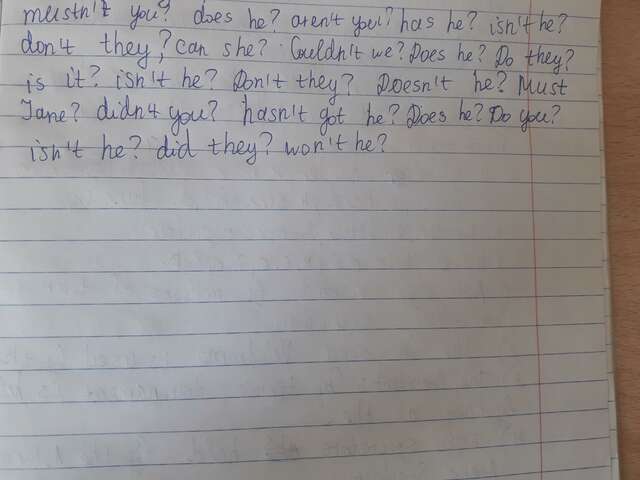 mustn't you? does he? aren't you? has he? isn't he?
don't they? can she? Couldn't we? Does he? Do they?
is it? isn't he? Don't they? Doesn't he? Must
Jane? didn't you? hasn't got he? Does he? Do you?
isn't he? did they? won't he?